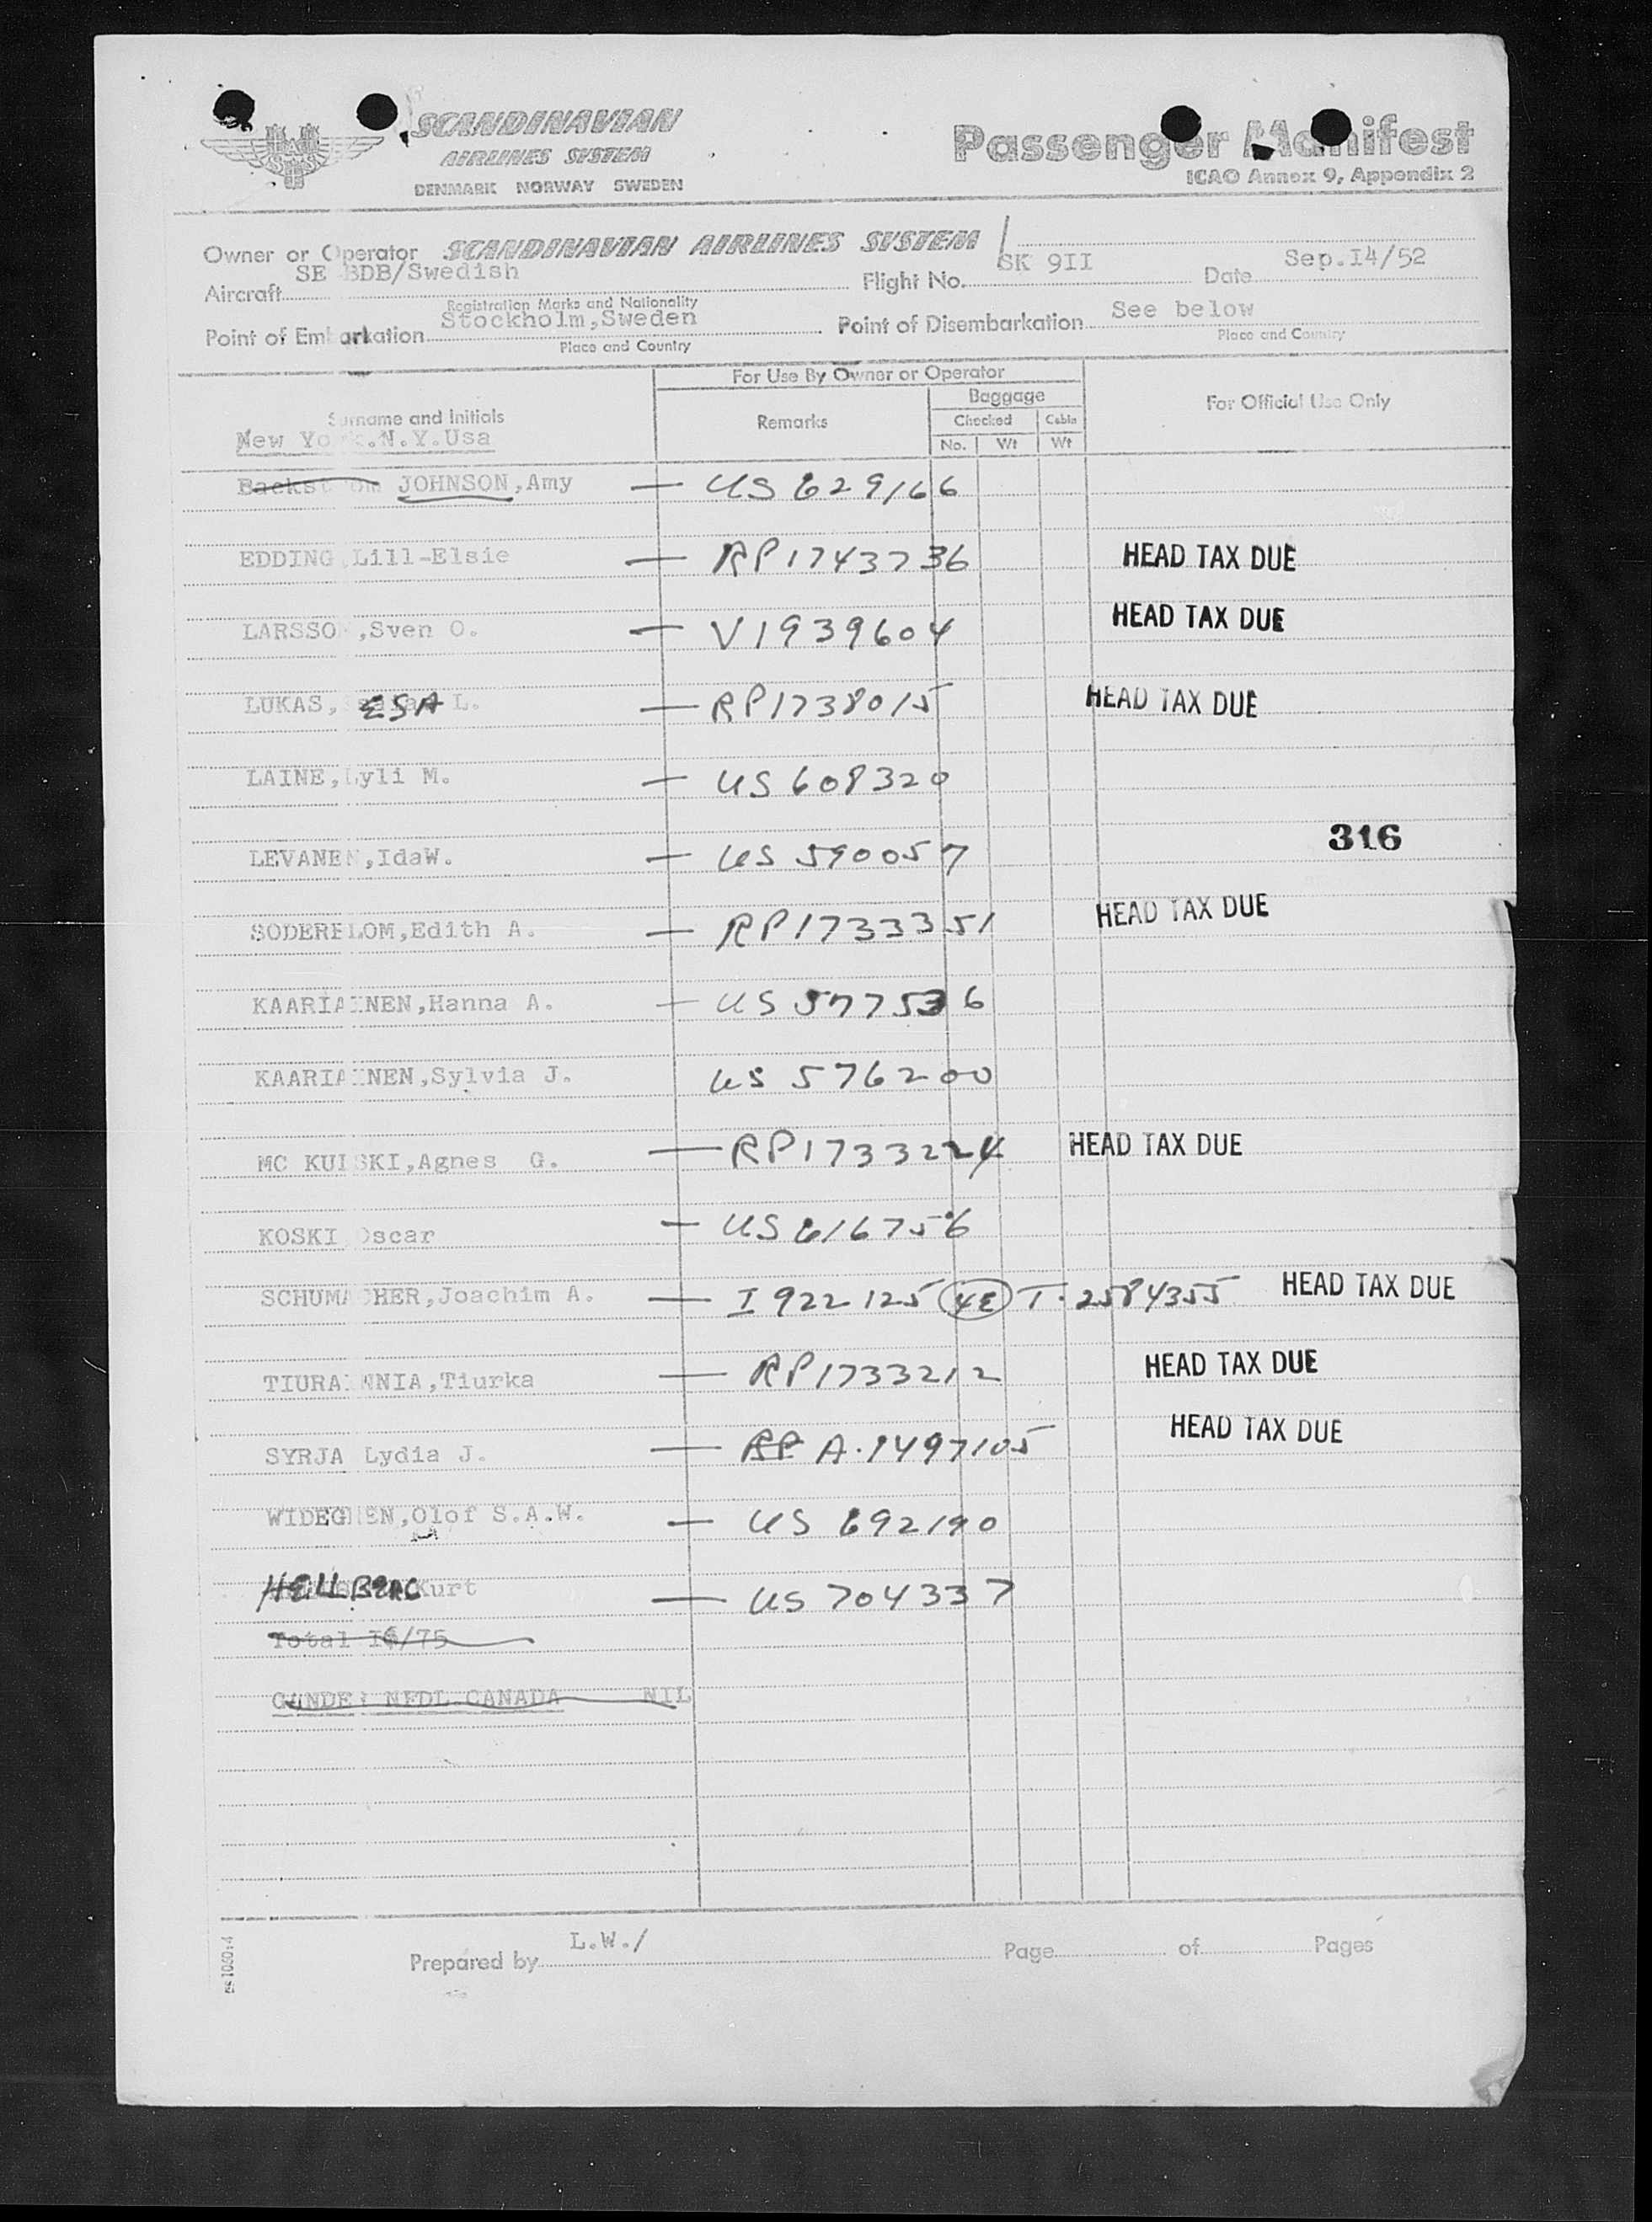 SCANDINAVIAN
AIRLINES SYSTEM
DENMARK NORWAY SWEDEN
Passenger Manifest
ICAO Annex 9, Appendix 2
Owner or Operator SCANDINAVIAN AIRLINES SYSTEM
Aircraft SE BDB/Swedish Flight No. SK 9II Date Sep.I4/52
Registration Marks and Nationality
Point of Embarkation Stockholm,Sweden Point of Disembarkation See below
Place and Country Place and Country
For Use By Owner or Operator
Surname and Initials Remarks Baggage For Official Use Only
Checked Cabin
No. Wt Wt
New York.N.Y.Usa
Backstrom JOHNSON,Amy — US 629166
EDDING Lill-Elsie — RP1743736 HEAD TAX DUE
LARSSON,Sven O. — V1939604 HEAD TAX DUE
LUKAS, ESA L. — RP1738015 HEAD TAX DUE
LAINE,Lyli M. — US 608320
316
LEVANEN,IdaW. — US 590057
SODERBLOM,Edith A. — RP1733351 HEAD TAX DUE
KAARIAINEN,Hanna A. — US 577536
KAARIAINEN,Sylvia J. US 576200
MC KUISKI,Agnes G. — RP1733224 HEAD TAX DUE
KOSKI Oscar — US 616756
SCHUMACHER,Joachim A. — I 922125 4E T-2584355 HEAD TAX DUE
TIURANNIA,Tiurka — RP1733212 HEAD TAX DUE
SYRJA Lydia J. — RP A-9497105 HEAD TAX DUE
WIDEGREN,Olof S.A.W. — US 692190
HELLBERG Kurt — US 704337
Total I6/75
GANDER NFDL.CANADA NIL
Prepared by L.W./ Page of Pages